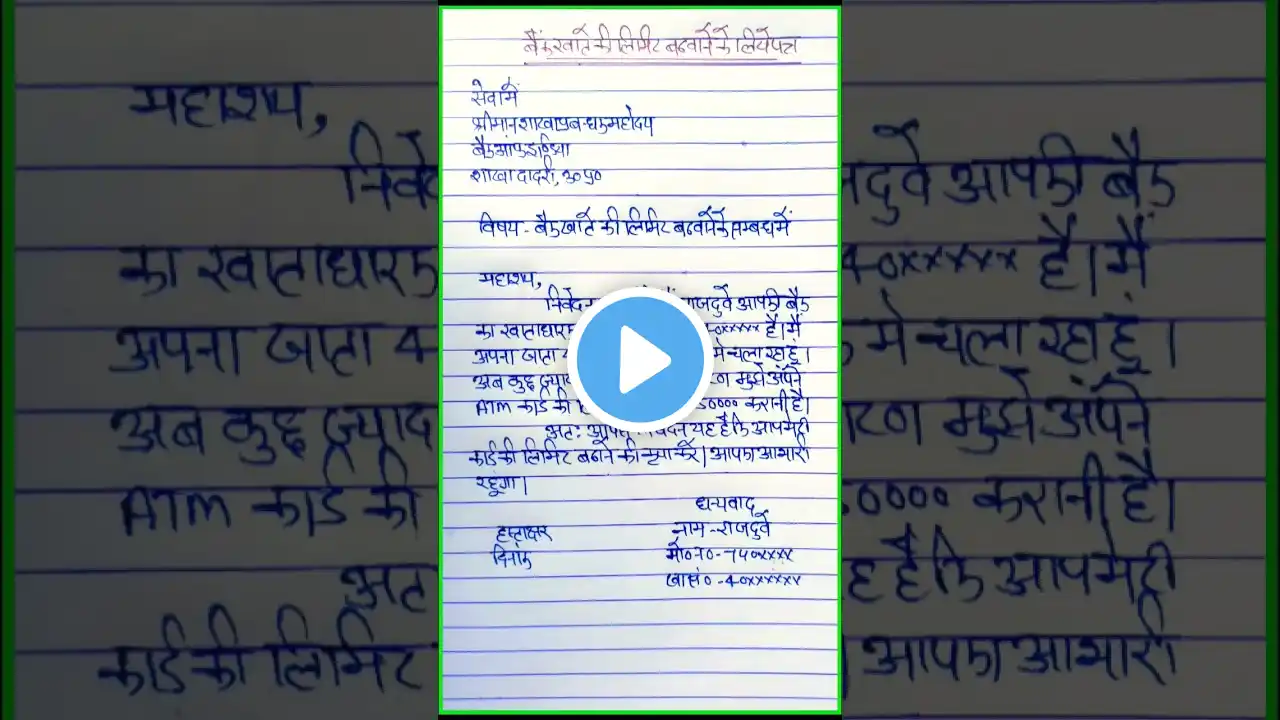 बैंक खाते की लिमिट बढवाने के लिये पत्र
सेवा में
श्रीमान शाखा प्रबन्धक महोदय
बैंक ऑफ इण्डिया
शाखा दादरी, उ०प्र०
विषय - बैंक खाते की लिमिट बढवाने के सम्बंध में
महाशय,
निवेदन राजदुवे आपकी बैंक
का खाताधारक 40xxxxx है। मैं
अपना खाता 4 मे चला रहा हूं।
अब कुछ ज्याद मुझे अपने
ATM कार्ड की 50000 करानी है।
अतः आपसे निवेदन यह है कि आप मेरी
कार्ड की लिमिट बढाने की कृपा करें। आपका आभारी
रहूंगा।
धन्यवाद
हस्ताक्षर नाम - राजदुवे
दिनांक मो०न० - 740xxxx
खा सं० - 40xxxxxx